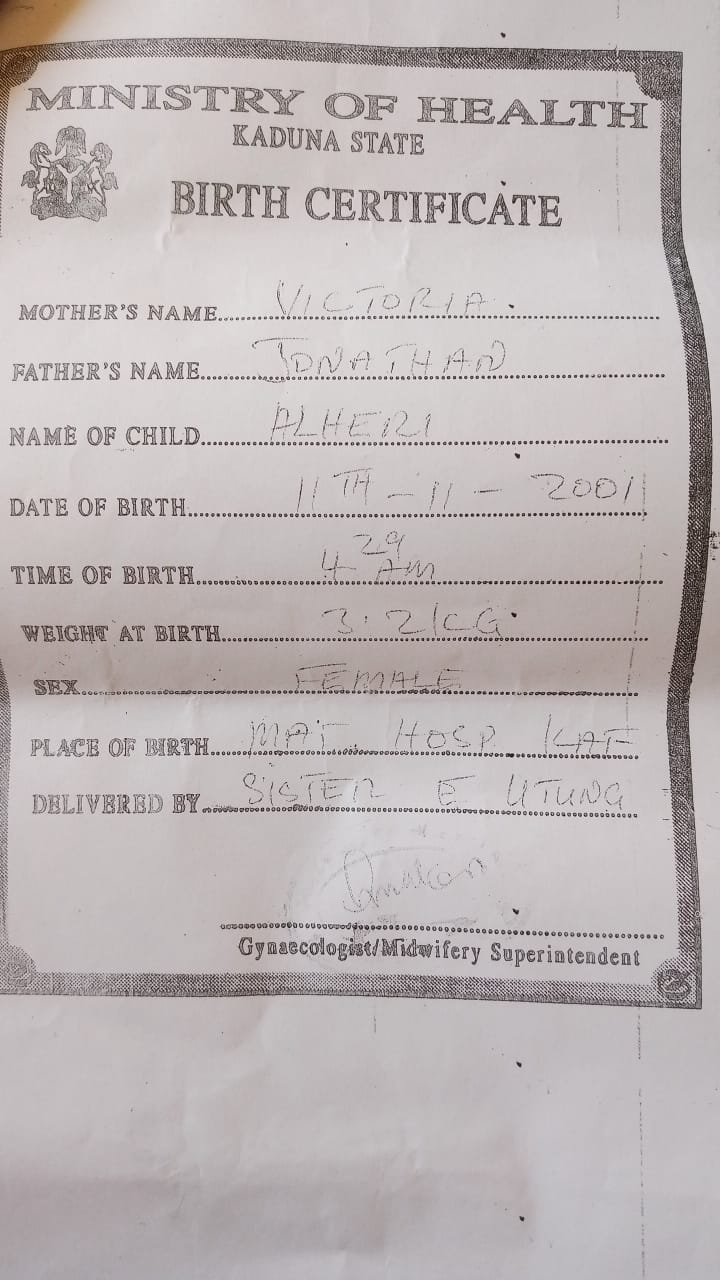 MINISTRY OF HEALTH
KADUNA STATE
BIRTH CERTIFICATE
MOTHER'S NAME VICTORIA
FATHER'S NAME JONATHAN
NAME OF CHILD ALHERI
DATE OF BIRTH 11TH - 11 - 2001
TIME OF BIRTH 4 29 AM
WEIGHT AT BIRTH 3.2KG
SEX FEMALE
PLACE OF BIRTH MAT. HOSP KAF
DELIVERED BY SISTER E UTUNG
Gynaecologist/Midwifery Superintendent